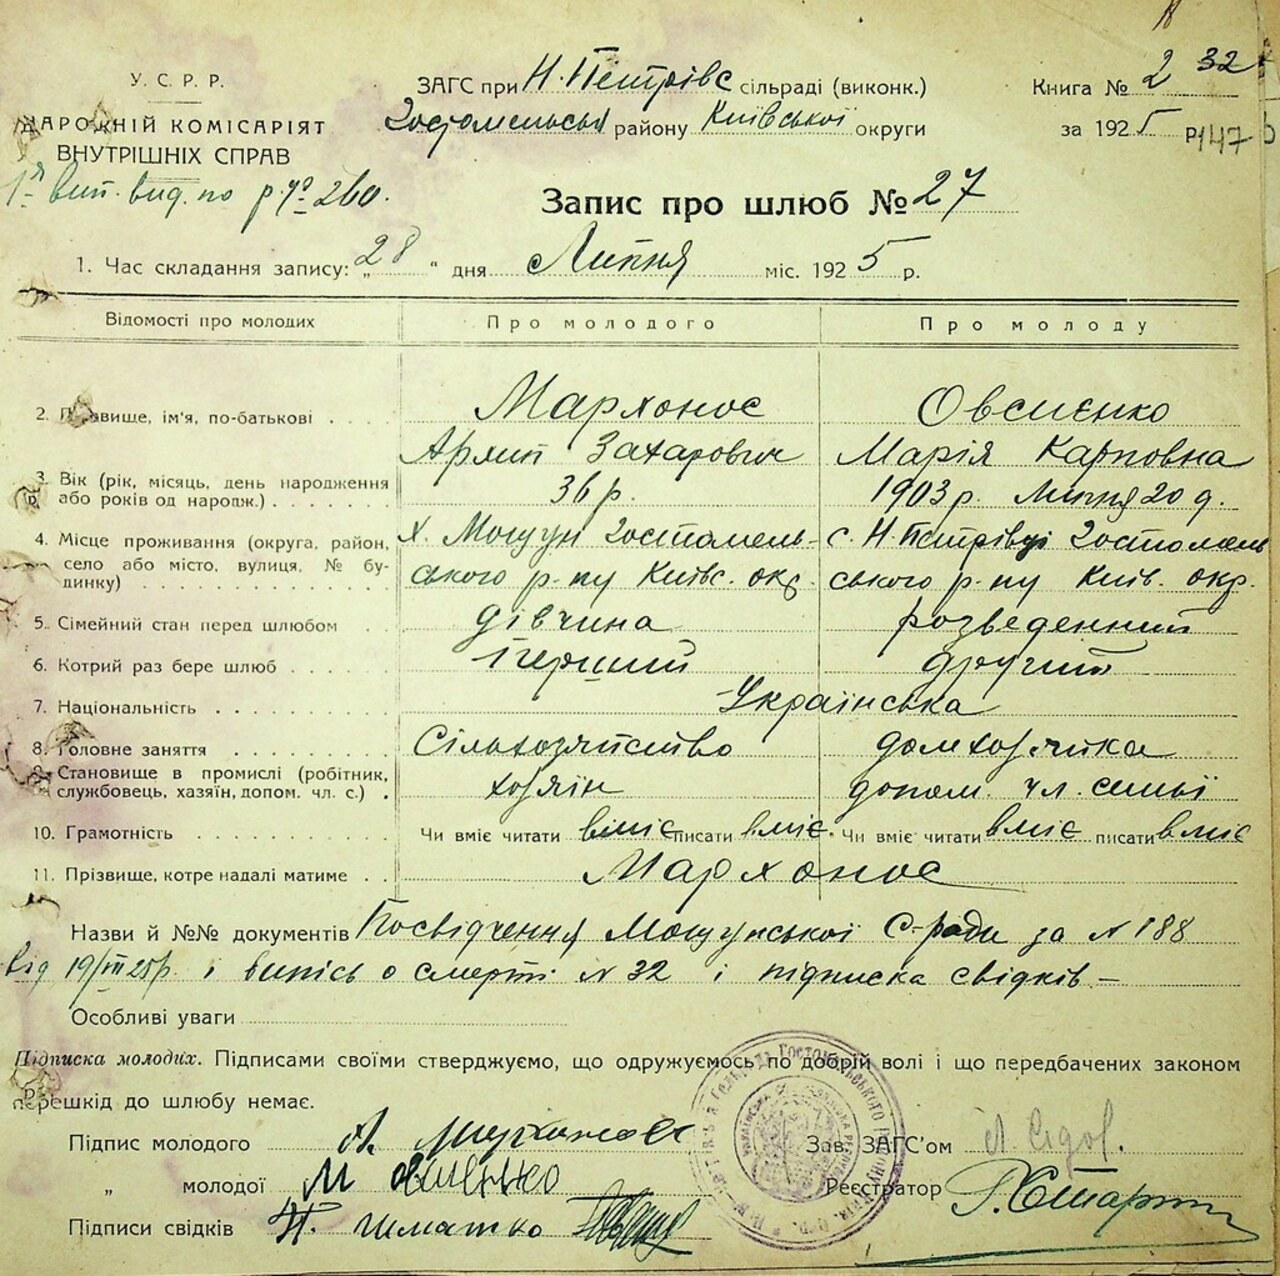 У.С.Р.Р.
НАРОДНІЙ КОМІСАРІЯТ
ВНУТРІШНІХ СПРАВ
1-я вип. вид. по р. № 260.
ЗАГС при Н. Петрівс сільраді (виконк.)
Гостомельськ району Київської округи
Книга № 2 32
за 1925 р. 147
Запис про шлюб № 27
1. Час складання запису: „28" дня Липня міс. 1925 р.
Відомості про молодих Про молодого Про молоду
2. Прізвище, ім'я, по-батькові . . . . Мархонос Овсиєнко
Архип Захарович Марія Карповна
3. Вік (рік, місяць, день народження або років од народж.) . . . . . . . 36 р. 1903 р. Липня 20 д.
4. Місце проживання (округа, район, село або місто, вулиця, № будинку) . . . . х. Мощун Гостомельського р-ну Київс. окр. с. Н-Петрівці Гостомельського р-ну Київ. окр.
5. Сімейний стан перед шлюбом . . дівчина розведенний
6. Котрий раз бере шлюб . . . . . . перший другий
7. Національність . . . . . . . . . Українська
8. Головне заняття . . . . . . . . Сільхозяйство домхозяйка
9. Становище в промислі (робітник, службовець, хазяїн, допом. чл. с.) . хозяїн допом. чл. семьї
10. Грамотність . . . . . . . . . . Чи вміє читати вміє писати вміє. Чи вміє читати вміє писати вміє
11. Прізвище, котре надалі матиме . . Мархонос
Назви й №№ документів Посвідчення Мощунської С-ради за № 188
від 19/VII 25 р. і випісь о смерті № 32 і підписка свідків –
Особливі уваги
Підписка молодих. Підписами своїми стверджуємо, що одружуємось по добрій волі і що передбачених законом
перешкід до шлюбу немає.
Підпис молодого А. Мархонос Зав. ЗАГС'ом
„ молодої М Овсиенко Реєстратор
Підписи свідків Н. Шматко